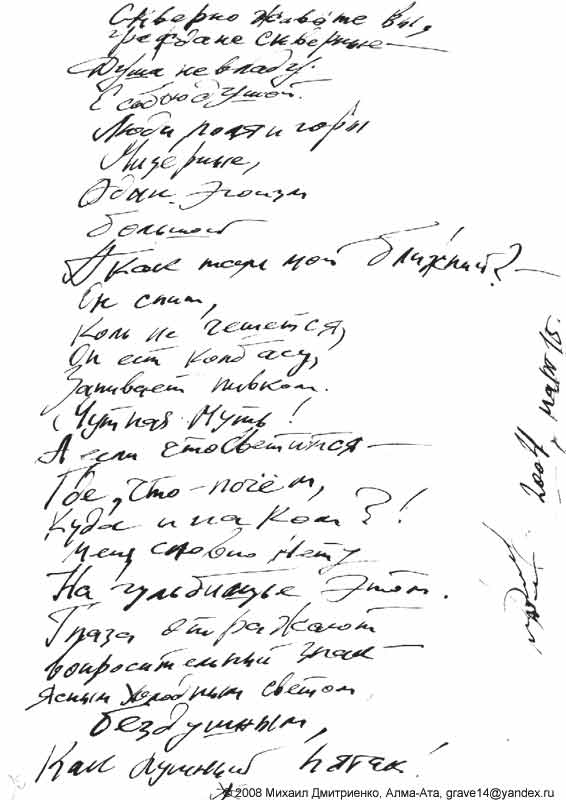 Скверно живёте вы,
граждане скверные —
Душа не в ладу
С собою душой.
Люди родят горы
Мизерные,
Один эгоизм
большой
А как там мой ближний? —
Он спит,
Коль не чешется,
Он ест колбасу,
Запивает пивком.
Чутная муть!
А если что светится —
Где, что-почём,
Куда и на ком?!
Меня словно нету
На гульбище этом.
Глаза отражают
вопросительный знак —
Ясным холодным светом
бездушным,
Как лунный пятак!
2004, март 15.
© 2008 Михаил Дмитриенко, Алма-Ата, grave14@yandex.ru